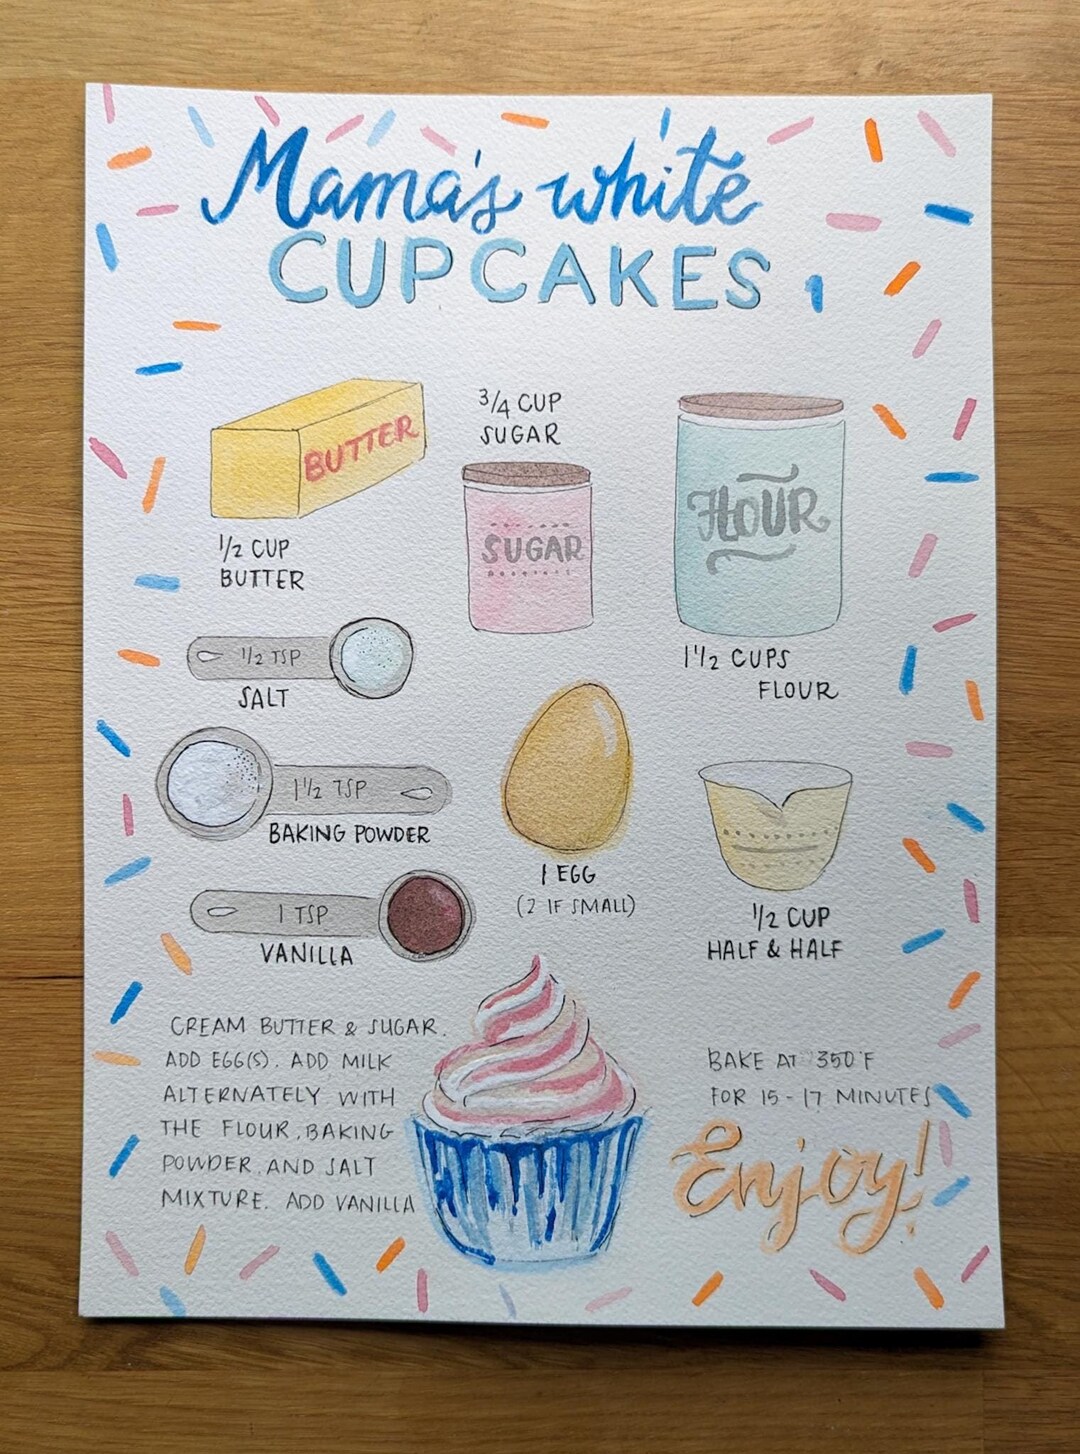 Mama's white
CUPCAKES
BUTTER
1/2 CUP
BUTTER
3/4 CUP
SUGAR
SUGAR
FLOUR
1 1/2 CUPS
FLOUR
1/2 TSP
SALT
1 1/2 TSP
BAKING POWDER
1 TSP
VANILLA
1 EGG
(2 IF SMALL)
1/2 CUP
HALF & HALF
CREAM BUTTER & SUGAR.
ADD EGG(S). ADD MILK
ALTERNATELY WITH
THE FLOUR, BAKING
POWDER AND SALT
MIXTURE. ADD VANILLA
BAKE AT 350°F
FOR 15-17 MINUTES
Enjoy!